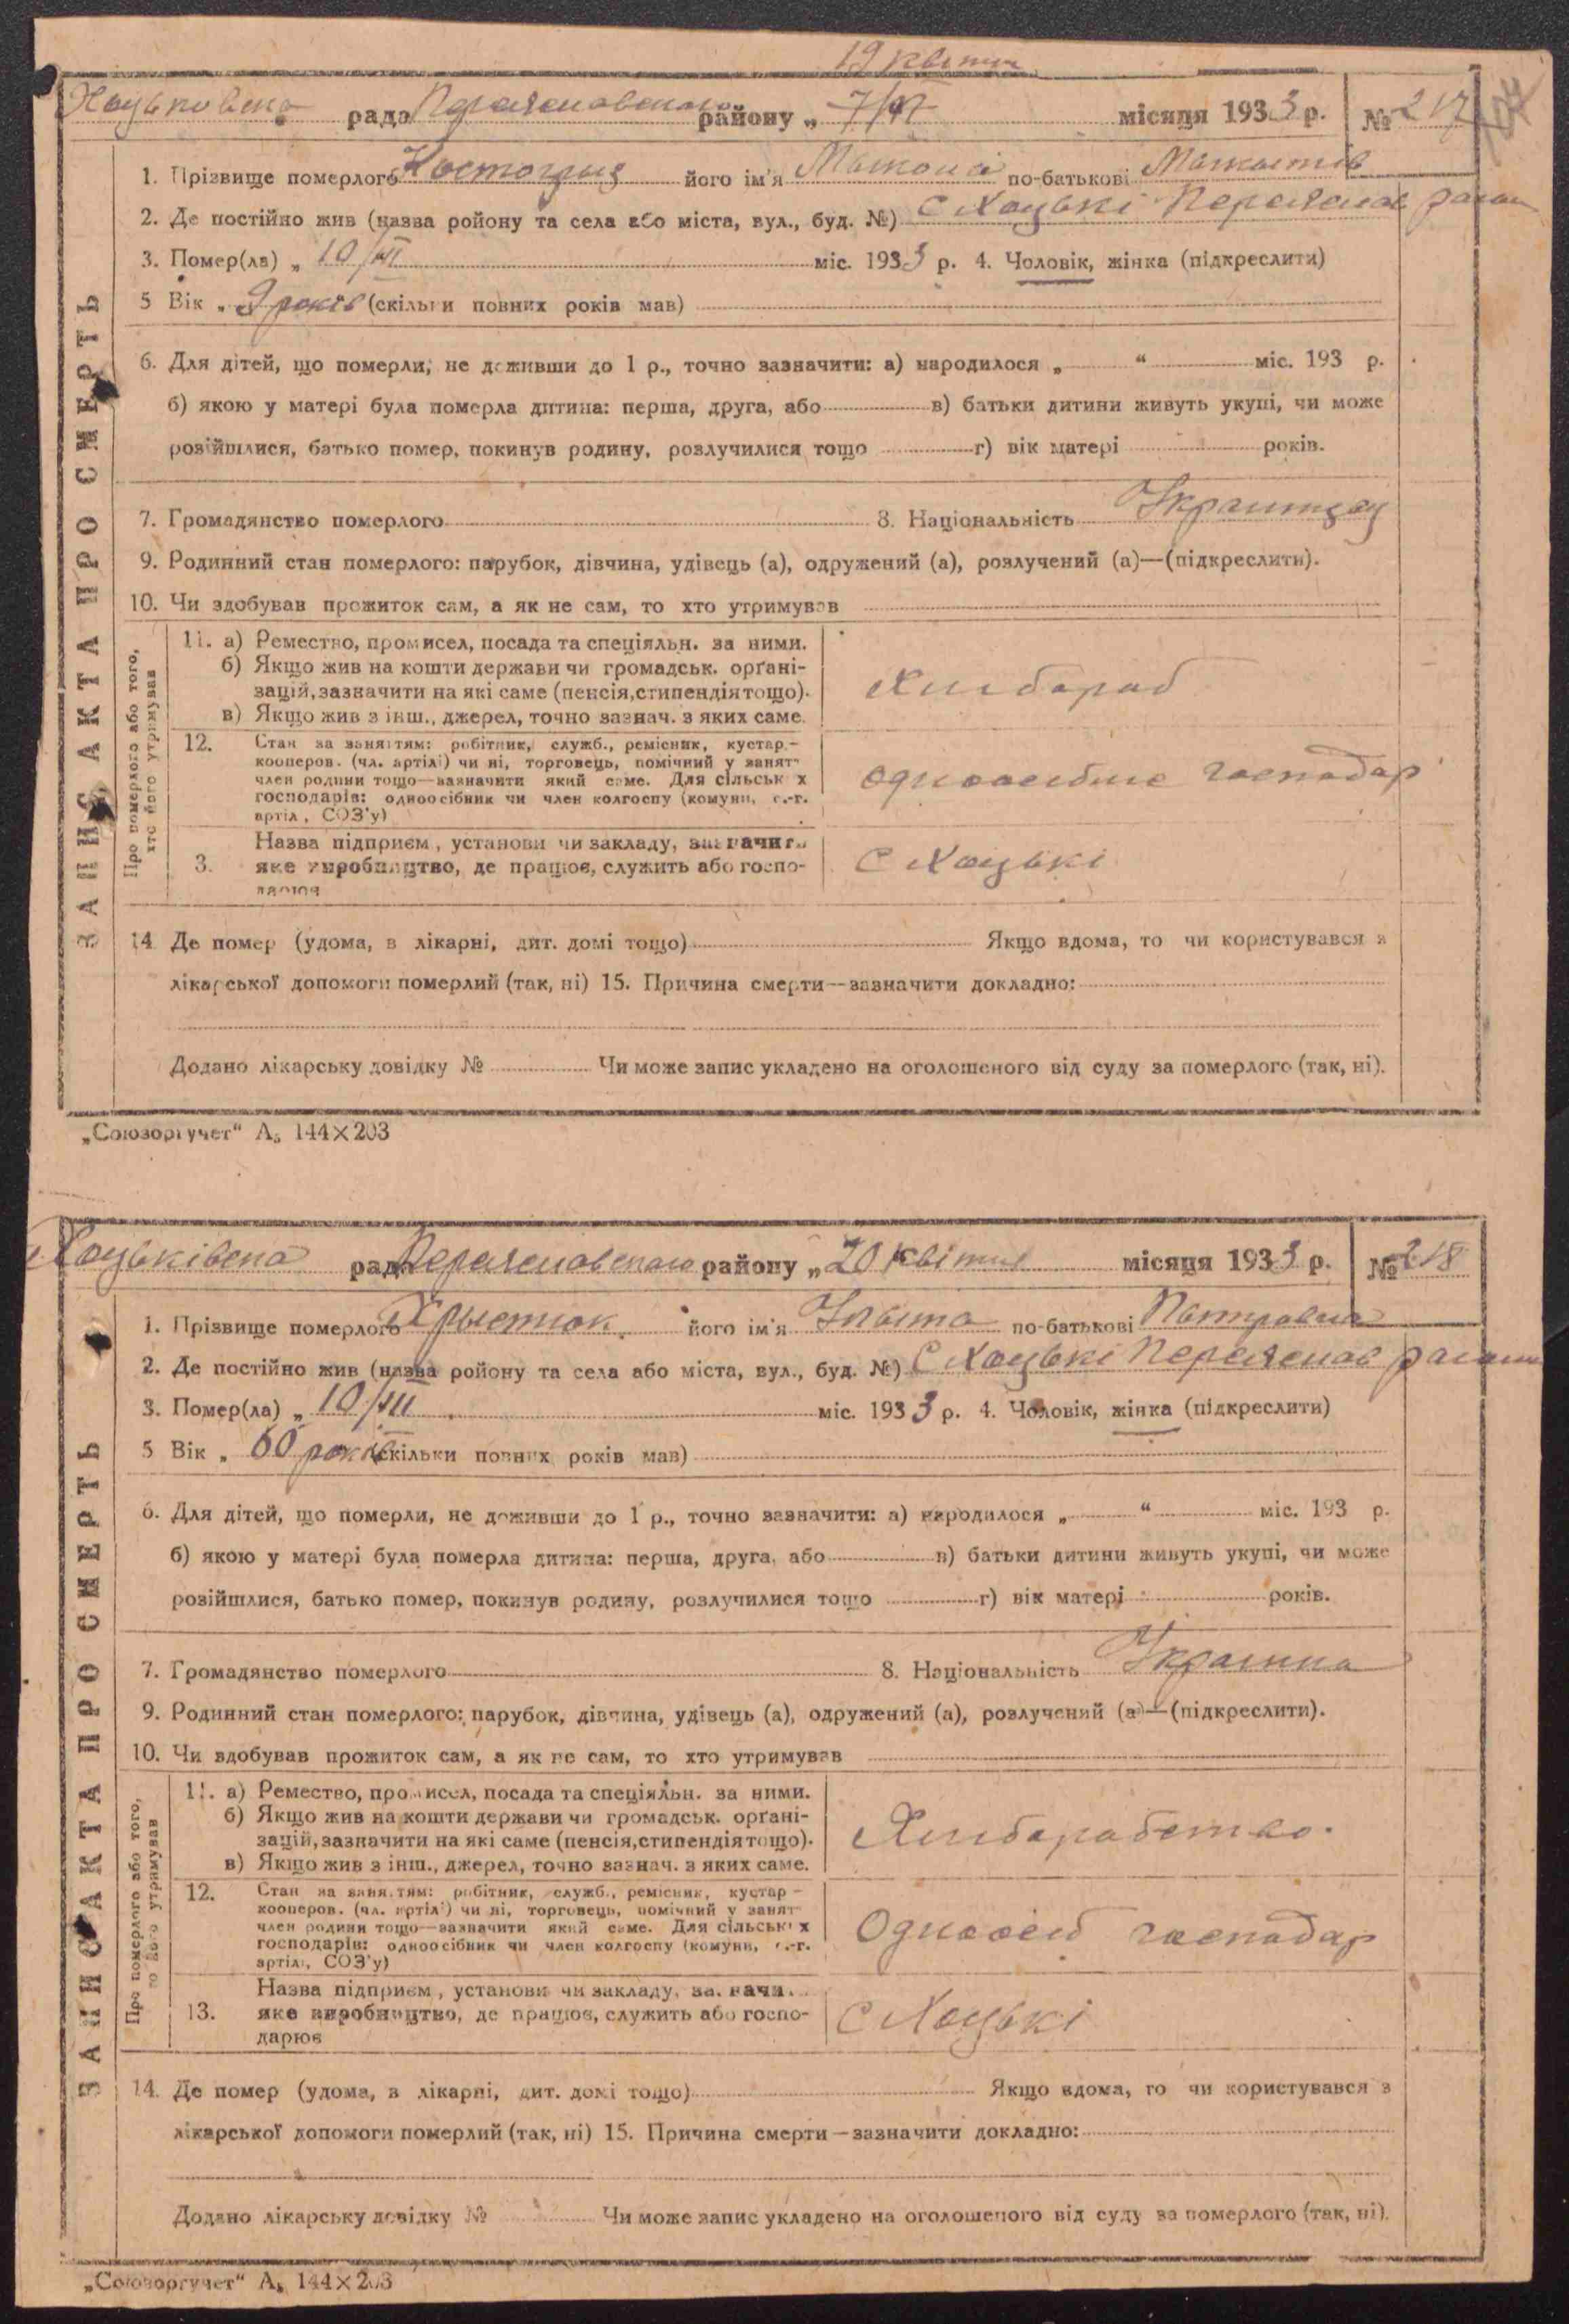 19 квітня
рада Переяславського району „ 7/VI місяця 1933 р. № 217
1. Прізвище померлого його ім'я по-батькові
2. Де постійно жив (назва ройону та села або міста, вул., буд. №) С Хоцькі Переяслав район
3. Помер(ла) „ 10/ міс. 1933 р. 4. Чоловік, жінка (підкреслити)
5 Вік „ 9 років (скільки повних років мав)
6. Для дітей, що померли, не доживши до 1 р., точно зазначити: а) народилося „ “ міс. 193 р.
б) якою у матері була померла дитина: перша, друга, або в) батьки дитини живуть укупі, чи може
розійшлися, батько помер, покинув родину, розлучилися тощо г) вік матері років.
7. Громадянство померлого 8. Національність
9. Родинний стан померлого: парубок, дівчина, удівець (а), одружений (а), розлучений (а)—(підкреслити).
10. Чи здобував прожиток сам, а як не сам, то хто утримував
ЗАПИС АКТА ПРО СМЕРТЬ
Про померлого або того, хто його утримував
11. а) Ремество, промисел, посада та спеціяльн. за ними.
б) Якщо жив на кошти держави чи громадськ. орґані-
зацій, зазначити на які саме (пенсія, стипендія тощо).
в) Якщо жив з інш., джерел, точно зазнач. з яких саме.
Хлібороб
12. Стан за заняттям: робітник, служб., ремісник, кустар.-
кооперов. (чл. артілі) чи ні, торговець, помічний у занятт
член родини тощо—зазначити який саме. Для сільськ х
господарів: одноосібник чи член колгоспу (комуни, с.-г.
артіл, СОЗ'у)
господар
Назва підприєм, установи чи закладу, зазначить
3. яке виробництво, де працює, служить або госпо-
дарює
С Хоцькі
14 Де помер (удома, в лікарні, дит. домі тощо) Якщо вдома, то чи користувався з
лікарської допомоги померлий (так, ні) 15. Причина смерти—зазначити докладно:
Додано лікарську довідку № Чи може запис укладено на оголошеного від суду за померлого (так, ні).
„Союзоргучет“ А₅ 144×203
Хоцьківська рада Переяславського району „ 20 квітня місяця 1933 р. № 218
1. Прізвище померлого Хрыстюк його ім'я Улыта по-батькові Пытровна
2. Де постійно жив (назва ройону та села або міста, вул., буд. №) С Хоцькі Переяслав район
3. Помер(ла) „ 10/III міс. 1933 р. 4. Чоловік, жінка (підкреслити)
5 Вік „ 60 років (скільки повних років мав)
6. Для дітей, що померли, не доживши до 1 р., точно зазначити: а) народилося „ “ міс. 193 р.
б) якою у матері була померла дитина: перша, друга, або в) батьки дитини живуть укупі, чи може
розійшлися, батько помер, покинув родину, розлучилися тощо г) вік матері років.
7. Громадянство померлого 8. Національність
9. Родинний стан померлого: парубок, дівчина, удівець (а), одружений (а), розлучений (а)—(підкреслити).
10. Чи здобував прожиток сам, а як не сам, то хто утримував
ЗАПИС АКТА ПРО СМЕРТЬ
Про померлого або того, то його утримував
11. а) Ремество, промисел, посада та спеціяльн. за ними.
б) Якщо жив на кошти держави чи громадськ. орґані-
зацій, зазначити на які саме (пенсія, стипендія тощо).
в) Якщо жив з інш., джерел, точно зазнач. з яких саме.
12. Стан за заняттям: робітник, служб., ремісник, кустар-
кооперов. (чл. артілі) чи ні, торговець, помічний у занятт
член родини тощо—зазначити який саме. Для сільських
господарів: одноосібник чи член колгоспу (комуни, с.-г.
артіл, СОЗ'у)
Одноосіб господар
Назва підприєм, установи чи закладу, зазначи
13. яке виробництво, де працює, служить або госпо-
дарює
С Хоцькі
14. Де помер (удома, в лікарні, дит. домі тощо) Якщо вдома, то чи користувався з
лікарської допомоги померлий (так, ні) 15. Причина смерти—зазначити докладно:
Додано лікарську довідку № Чи може запис укладено на оголошеного від суду за померлого (так, ні).
„Союзоргучет“ А₅ 144×203